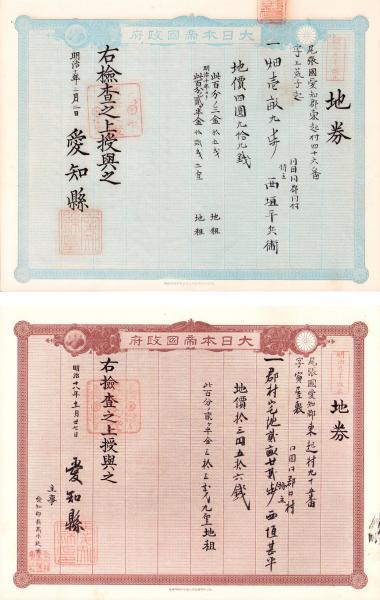 大日本帝國政府
地券
尾張國愛知郡東起村四十六番
字上茨子起
同國同郡同村
持主 西垣平兵衛
一畑壱畝九歩
地價四圓九拾九銭
此百分ノ三金拾五銭 地租
明治十年ヨリ
此百分ノ貳ヶ半金拾貳銭二厘 地租
右検査之上授與之
明治十一年二月一日
愛知縣
大日本帝國政府
地券
尾張國愛知郡東起村九十五番
字寅屋敷
同國同郡同村
持主 西垣甚平
一郡村宅地貳畝廿貳歩
地價拾三円五拾六銭
此百分ノ貳ヶ半金三拾三銭九厘地租
右検査之上授與之
明治十八年
愛知縣
主事